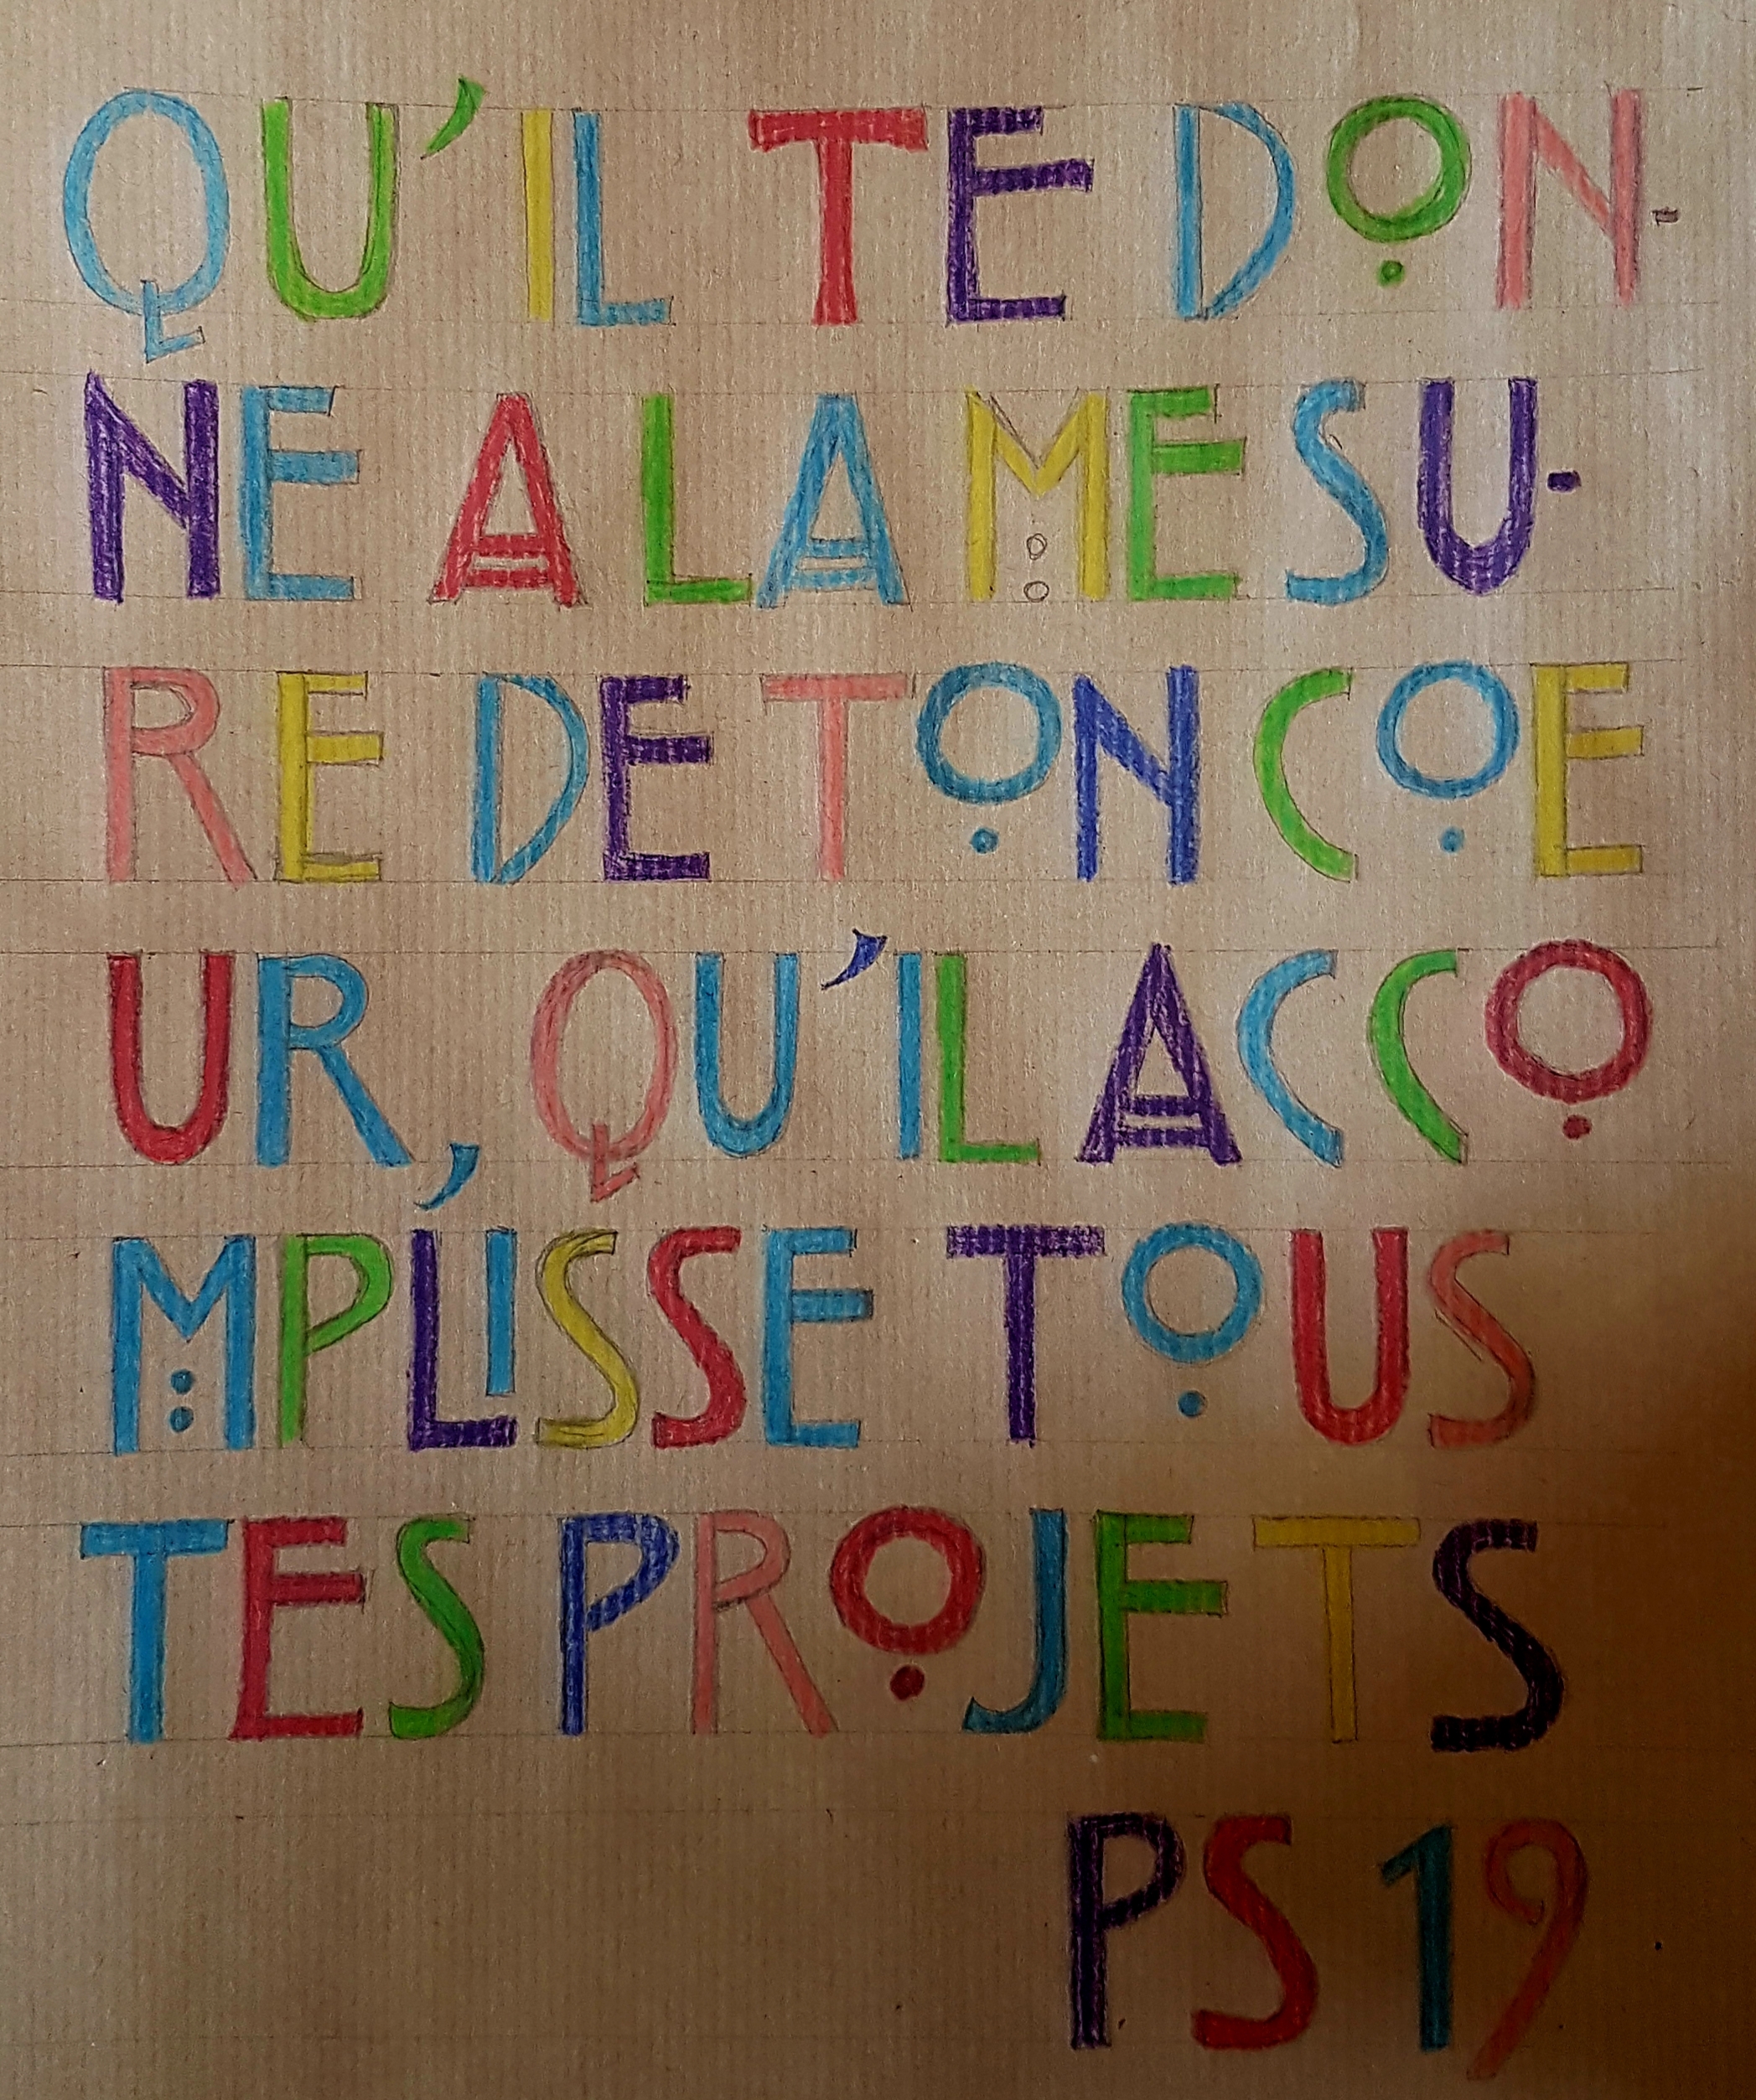 QU'IL TE DON-
NE A LA MESU-
RE DE TON COE
UR, QU'IL ACCO
MPLISSE TOUS
TES PROJETS
PS 19